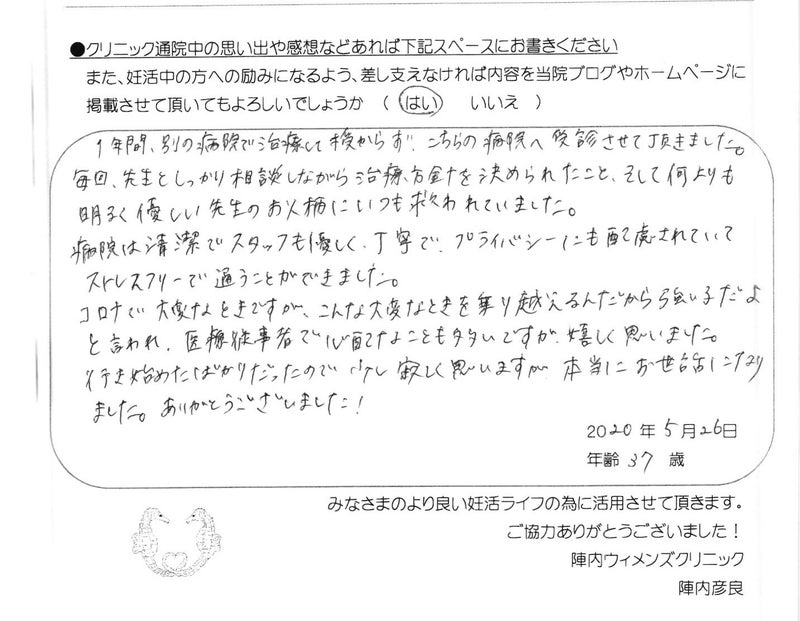 ●クリニック通院中の思い出や感想などあれば下記スペースにお書きください
また、妊活中の方への励みになるよう、差し支えなければ内容を当院ブログやホームページに
掲載させて頂いてもよろしいでしょうか （ はい　いいえ ）
1年間、別の病院で治療して授からず、こちらの病院へ受診させて頂きました。
毎回、先生としっかり相談しながら治療方針を決められたこと、そして何よりも
明るく優しい先生のお人柄にいつも救われていました。
病院は清潔でスタッフも優しく、丁寧で、プライバシーにも配慮されていて
ストレスフリーで通うことができました。
コロナで大変なときですが、こんな大変なときを乗り越えるんだから強い子だよ
と言われ、医療従事者で心配なことも多いですが、嬉しく思いました。
行き始めたばかりだったので少し寂しく思いますが、本当にお世話になり
ました。ありがとうございました！
2020年5月26日
年齢 37 歳
みなさまのより良い妊活ライフの為に活用させて頂きます。
ご協力ありがとうございました！
陣内ウィメンズクリニック
陣内彦良